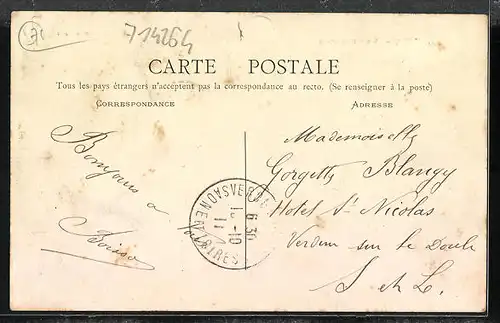 71
714264
CARTE POSTALE
Tous les pays étrangers n'acceptent pas la correspondance au recto. (Se renseigner à la poste)
CORRESPONDANCE
ADRESSE
Bonjours a
Mademoiselle
Gorgette Blangy
Hotel St Nicolas
Verdun sur le Doub
S et L.
6 30